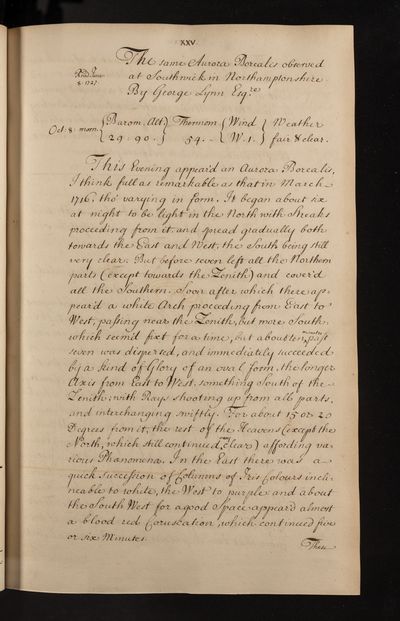 XXV.
The same Aurora Borealis observed
Read June
8. 1727.
at Southwick in Northamptonshire
By George Lynn Esq.re
Oct: 8. morn. {Barom. Alt:} Thermom {Wind } Weather
{29. 90. } 54. {W. 1. } fair & clear.
This Evening appear'd an Aurora Borealis,
I think full as remarkable as that in March
1716. tho' varying in form. It began about six
at night to be light in the North with Streaks
proceeding from it, and spread gradually both
towards the East and West, the South being still
very clear. But before seven left all the Northern
parts (except towards the Zenith) and cover'd
all the Southern. Soon after which there ap-
pear'd a while Arch proceeding from East to
West, passing near the Zenith, but more South,
which seem'd fixt for a time, but about ten minutes past
seven was dispersed, and immediately succeeded
by a kind of Glory of an oval form, the longer
Axis from East to West, something South of the
Zenith, with Rays shooting up from all parts,
and interchanging swiftly. For about 15 or 20
Degrees from it, the rest of the Heavens (except the
North, which still continued clear) affording va-
rious Phænomena. In the East there was a
quick Succession of Columns of Iris Colours incli-
neable to white, the West to purple and about
the South West for a good Space appear'd almost
a blood red Coruscation, which continued five
or six Minutes.
These